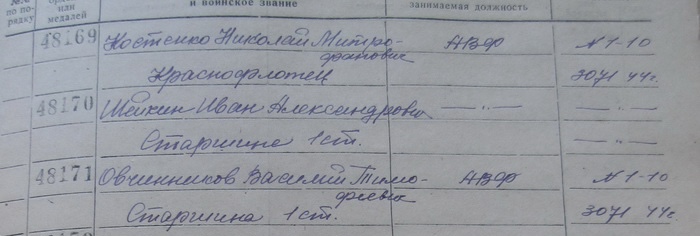 по по-
рядку
или
медалей
и воинское звание
занимаемая должность
48169 Костенко Николай Митро- АВФ N 1-10
фанович
Краснофлотец 3071 44г.
48170 Шейкин Иван Александрович —"— —"—
Старшине 1 ст. —"—
48171 Овчинников Василий Тимо- АВФ N 1-10
феевич
Старшина 1 ст. 3071 44г.